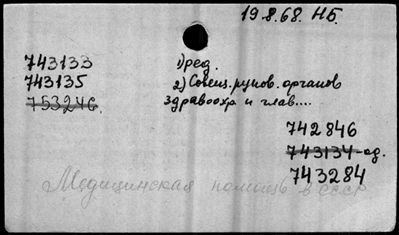 19.8.68. НБ.
743133
743135
753246.
1) ред.
2) Совещ. руков. органов
здравоохр и глав....
742846
743134-ад.
743284
Медицинская помощь в СССР